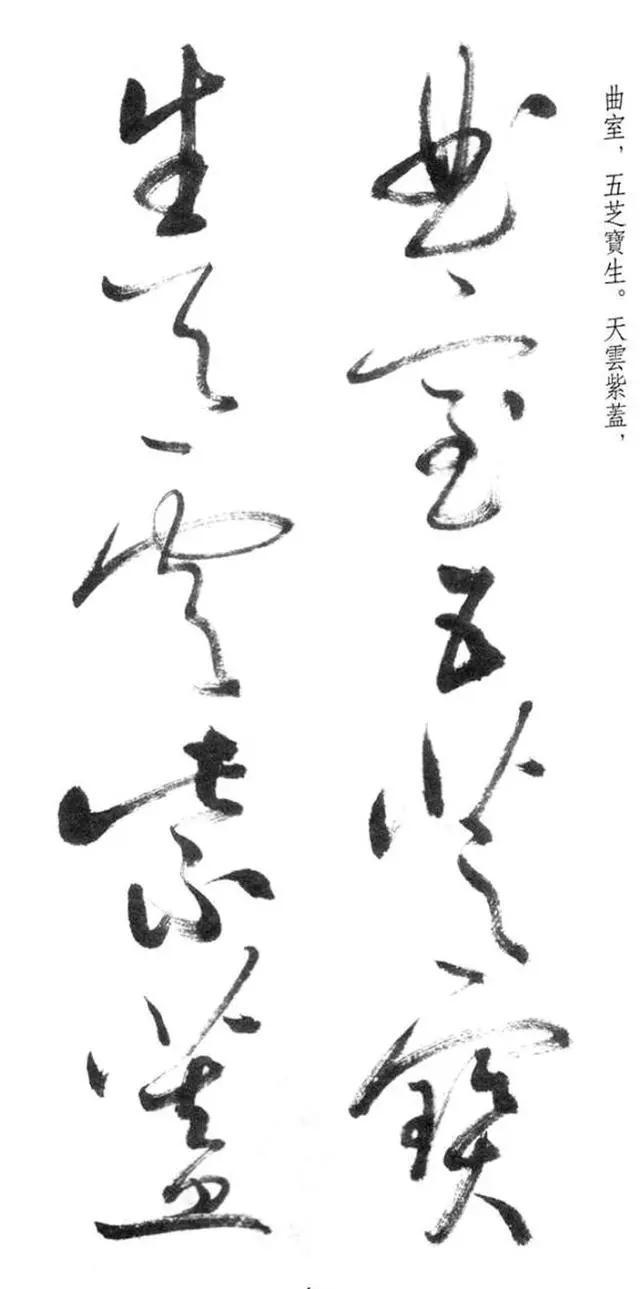 曲室，五芝寶生。天雲紫蓋，
曲室五芝寶
生天雲紫蓋